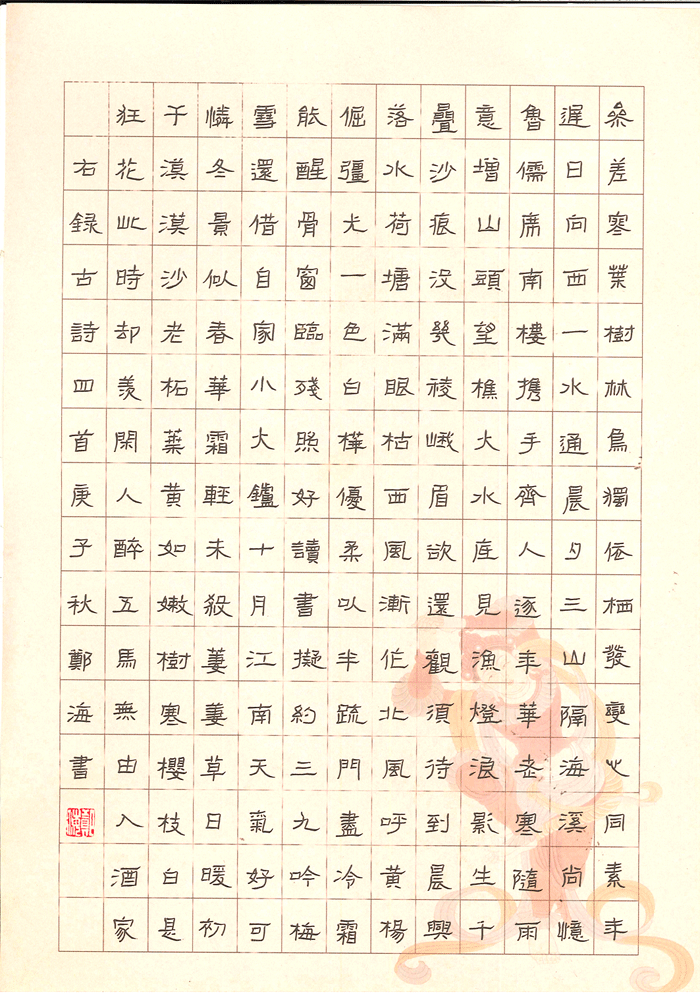 叅差寒葉樹林鳥獨依栖發變心同素年
遲日向西一水通晨夕三山隔海溪尚憶
魯儒席南樓携手齊人逐年華老寒隨雨
意增山頭望樵火水底見漁燈浪影生千
疊沙痕沒幾稜峨眉欲還觀須待到晨興
落水荷塘滿眼枯西風漸作北風呼黃楊
倔彊尤一色白樺優柔以半疏門盡冷霜
能醒骨窗臨殘照好讀書擬約三九吟梅
雪還借自家小火鑪十月江南天氣好可
憐冬景似春華霜輕未殺萋萋草日暖初
干漠漠沙老柘葉黃如嫩樹寒櫻枝白是
狂花此時却羨閑人醉五馬無由入酒家
右録古詩四首庚子秋鄭海書